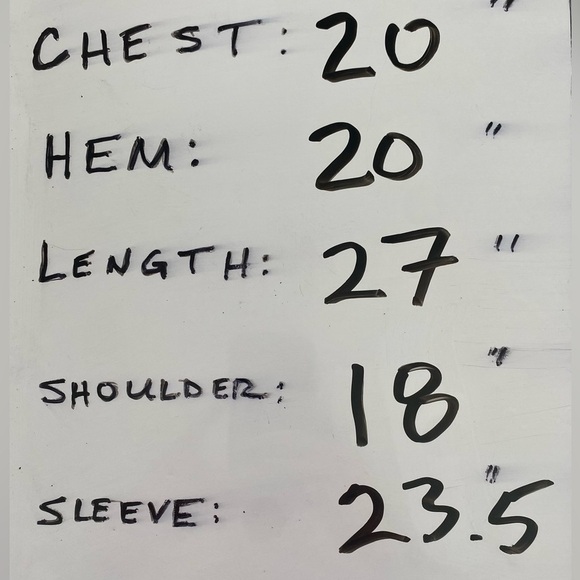 CHEST: 20"
HEM: 20"
LENGTH: 27"
SHOULDER: 18"
SLEEVE: 23.5"